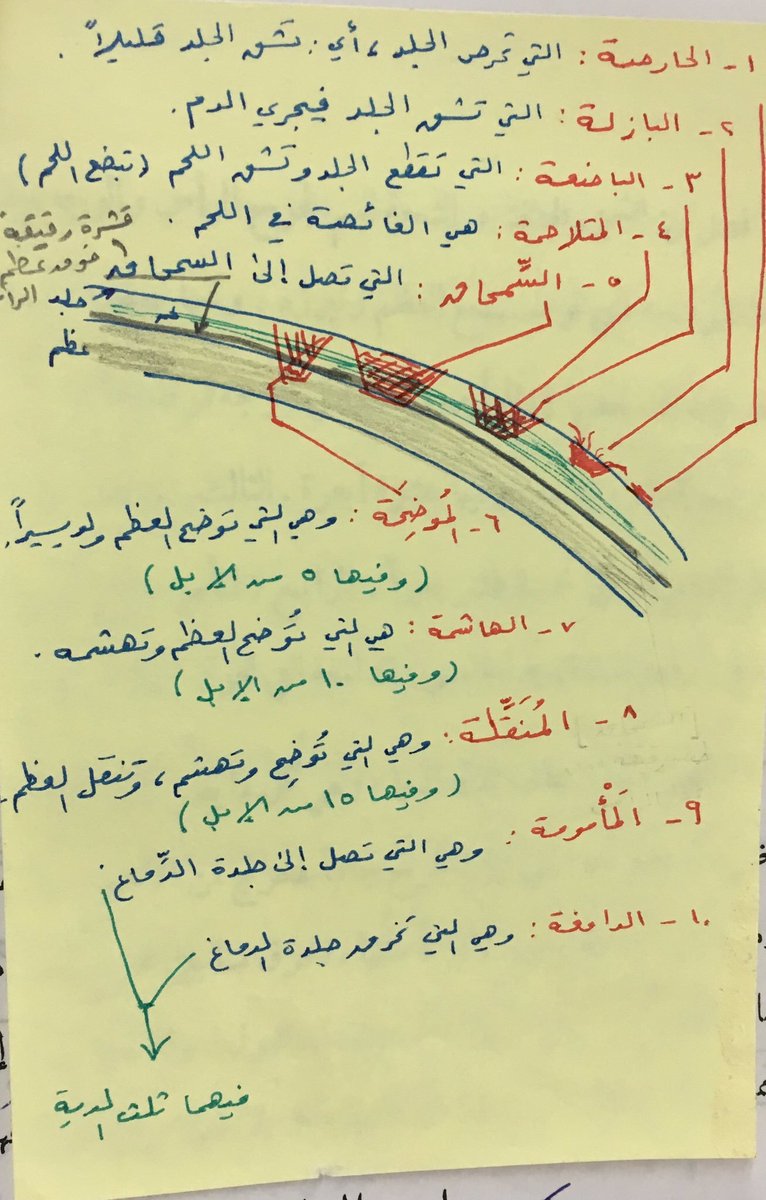 ١- الحارصة : التي تحرص الجلد ، أي : تشق الجلد قليلاً .
٢- البازلة : التي تشق الجلد فيجري الدم .
٣- الباضعة : التي تقطع الجلد وتشق اللحم (تبضع اللحم)
٤- المتلاحمة : هي الغائصة في اللحم .
قشرة رقيقة
فوق عظم
الرأ
٥- السِّمحاق : التي تصل إلى السمحاق
جلد
عظم
٦- المُوضِحة : وهي التي توضح العظم ولو يسيراً .
(وفيها ٥ من الإبل)
٧- الهاشمة : هي التي تُوضح العظم وتهشمه .
(وفيها ١٠ من الإبل)
٨- المُنَقِّلة : وهي التي تُوضِح وتهشم ، وتنقل العظم .
(وفيها ١٥ من الإبل)
٩- المَأْمومة : وهي التي تصل إلى جلدة الدِّماغ .
١٠- الدامغة : وهي التي تخرق جلدة الدماغ
فيهما ثلث الدية